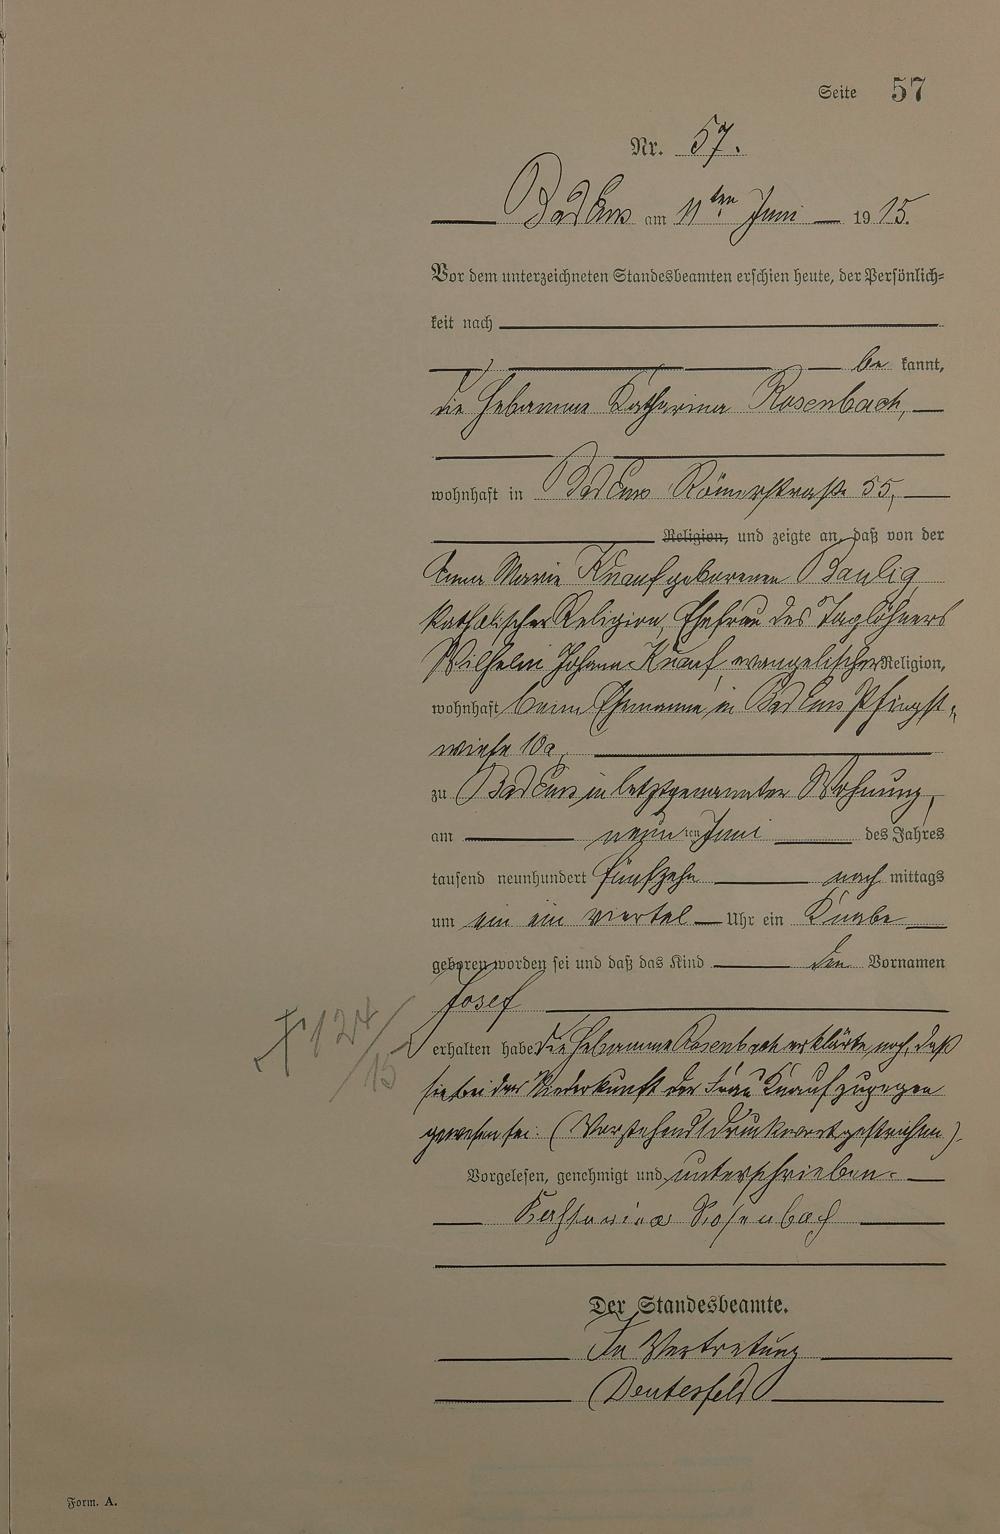 Seite 57
Nr. 57.
Bad Ems am 11ten Juni 1915.
Vor dem unterzeichneten Standesbeamten erschien heute, der Persönlich-
keit nach
be kannt,
die Hebamme Katharina Rosenbach,
wohnhaft in Bad Ems Römerstraße 55,
Religion, und zeigte an, daß von der
Anna Marie Knauf geborenen Baulig
katholischer Religion, Ehefrau des Taglöhners
Wilhelm Johann Knauf, evangelischer Religion,
wohnhaft beim Ehemanne in Bad Ems Pfingst-
wiese 10a,
zu Bad Ems in letztgenannter Wohnung,
am neun ten Juni des Jahres
tausend neunhundert fünfzehn nach mittags
um ein ein viertel Uhr ein Knabe
geboren worden sei und daß das Kind den Vornamen
Josef
erhalten habe. Die Hebamme Rosenbach erklärte noch, daß
sie bei der Niederkunft der Frau Knauf zugegen
gewesen sei. (Vorstehend 1 Druckwort gestrichen).
Vorgelesen, genehmigt und unterschrieben.
Katharina Rosenbach
Der Standesbeamte.
In Vertretung
Deutesfeld
† 124/15
Form. A.